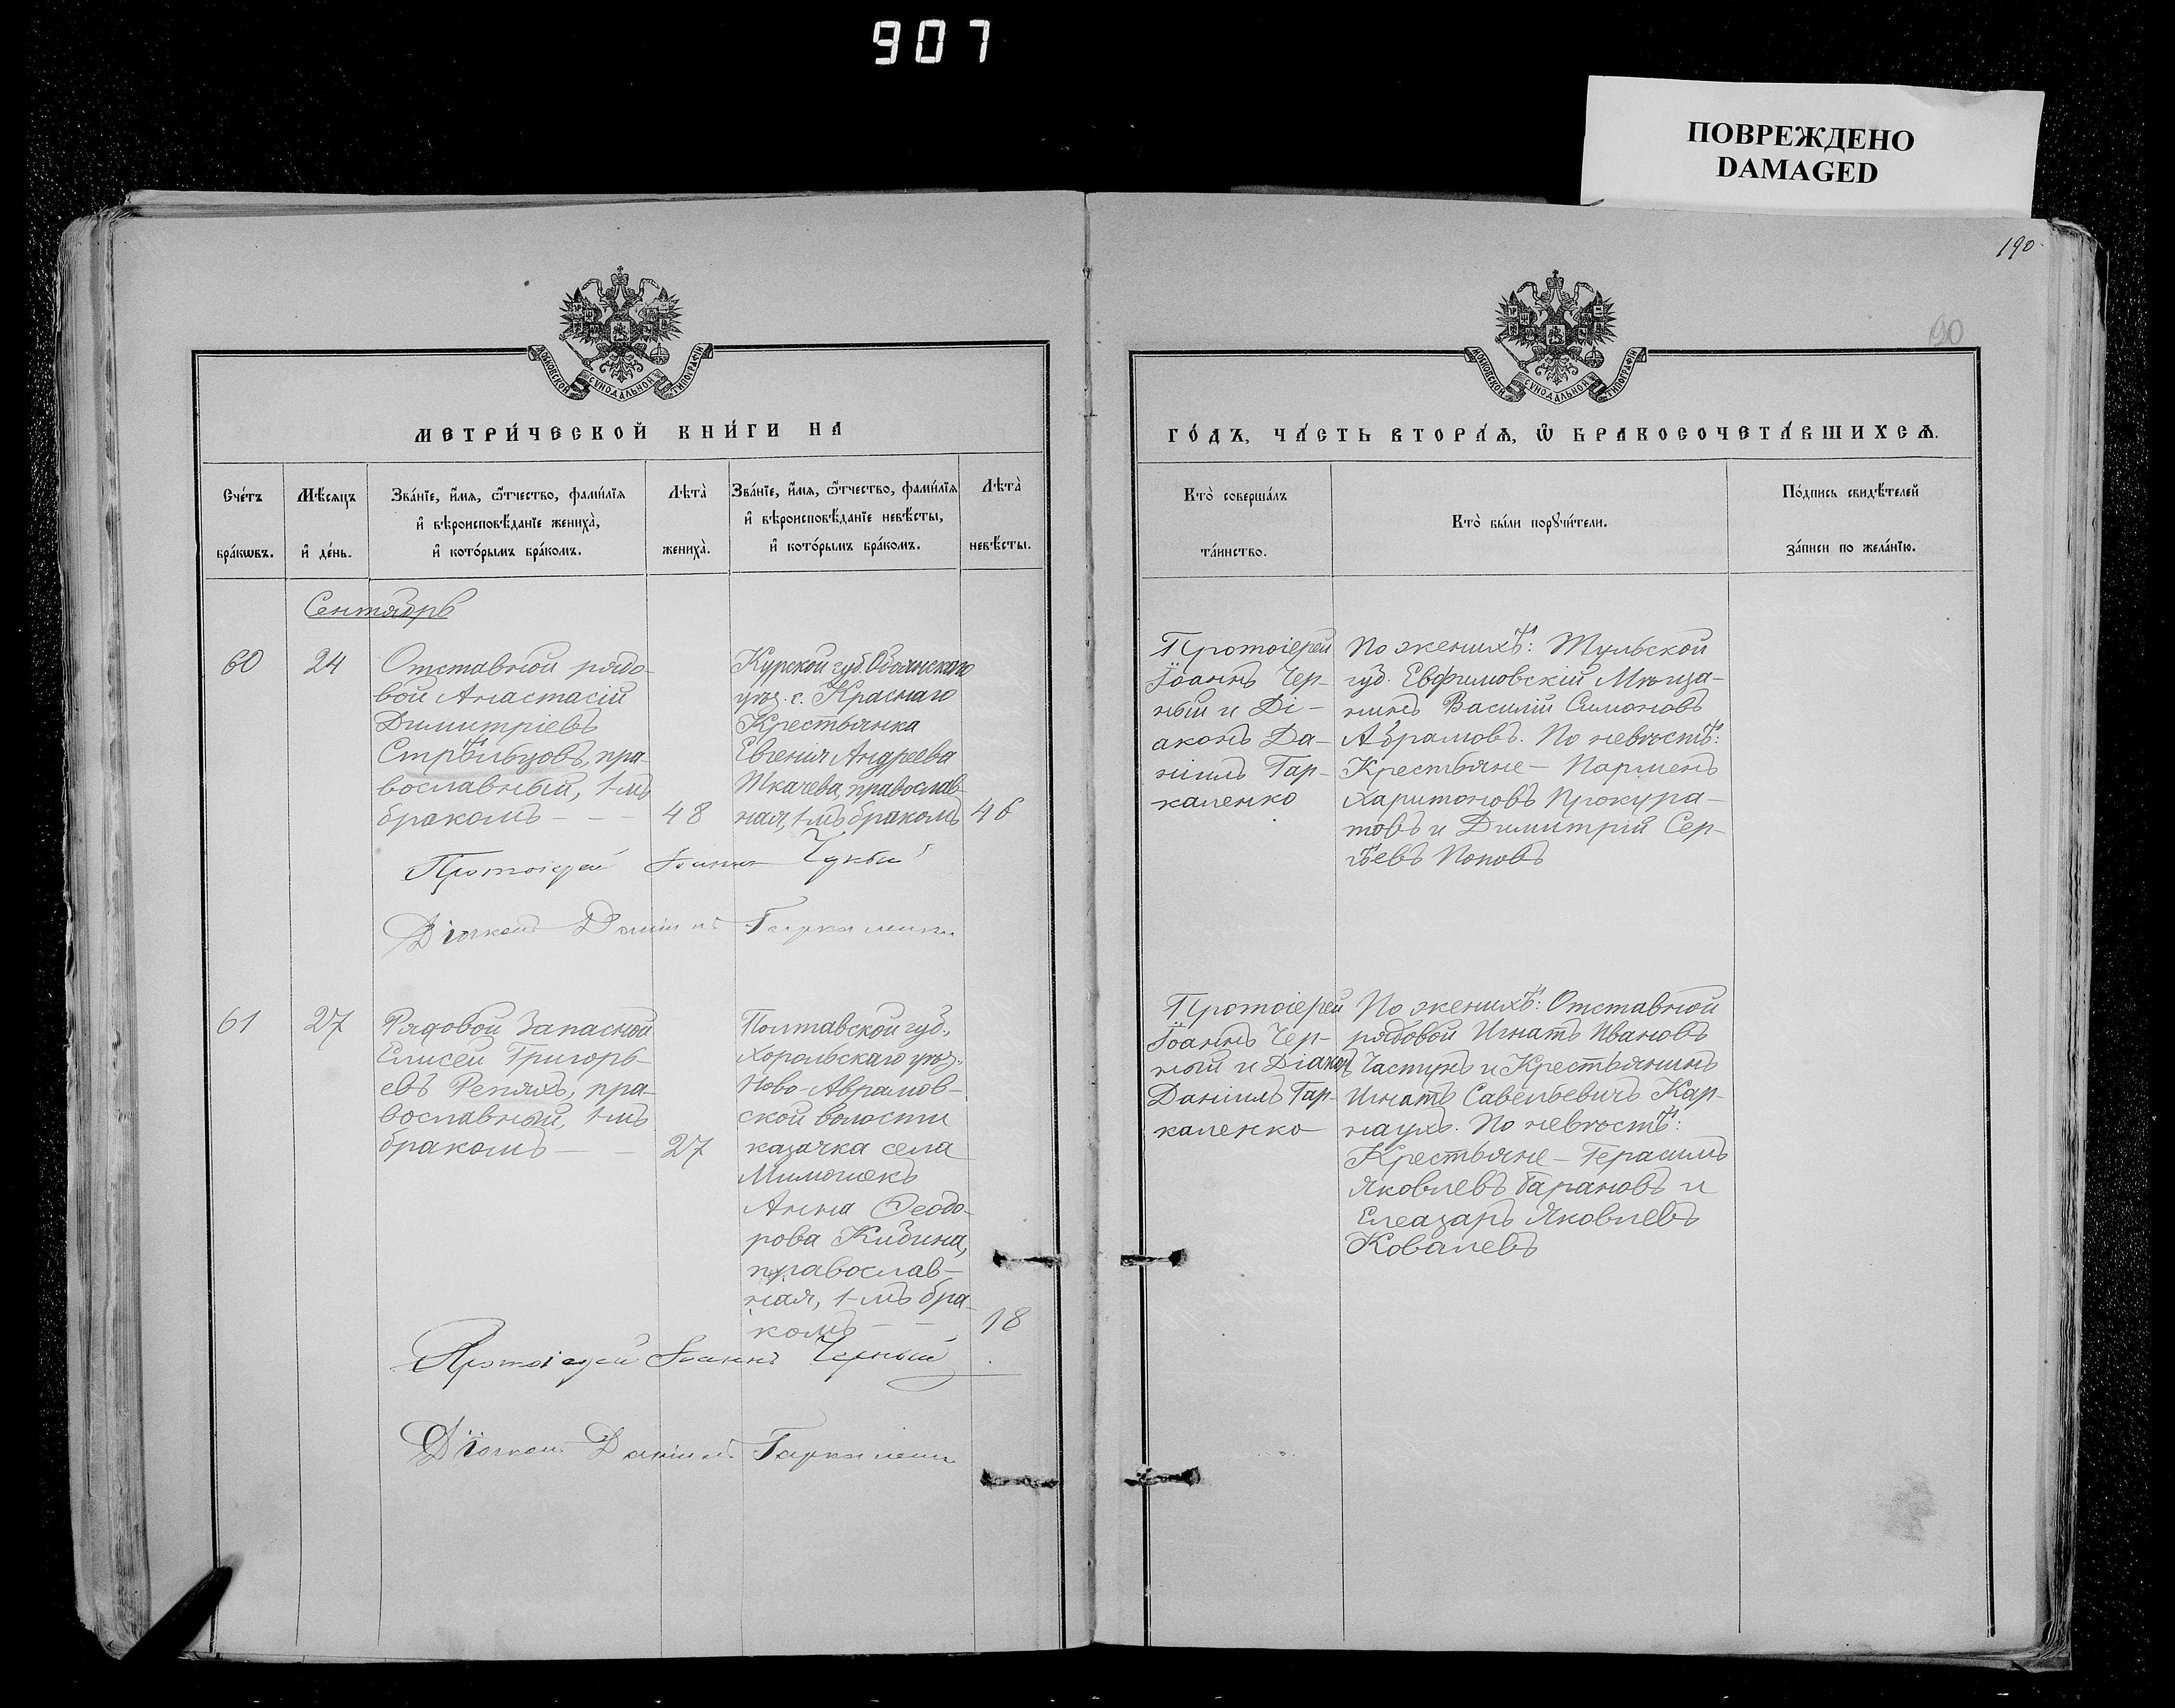 907
ПОВРЕЖДЕНО
DAMAGED
190
90
МОСКОВСКОЙ СѴНОДАЛЬНОЙ ТИПОГРАФІИ
МЕТРИ́ЧЕСКОЙ КНИ́ГИ НА
Сче́тъ бра́кѡвъ.
Мѣ́сяцъ и҆ де́нь.
Зва́нїе, и҆́мѧ, ѻ҆́тчество, фами́лїѧ
и҆ вѣроисповѣ́данїе женихà,
и҆ кото́рымъ бра́комъ.
Лѣтà женихà.
Зва́нїе, и҆́мѧ, ѻ҆́тчество, фами́лїѧ
и҆ вѣроисповѣ́данїе невѣ́сты,
и҆ кото́рымъ бра́комъ.
Лѣтà невѣ́сты.
Сентябрь
60
24
Отставной рядо-
вой Анастасій
Димитріевъ
Стрѣльцовъ, пра-
вославный, 1-мъ
бракомъ - - -
48
Курской губ. Обоянскаго
уѣз. с. Краснаго
Крестьянка
Евгенія Андреева
Ткачева, православ-
ная, 1-мъ бракомъ
46
Протоіерей Іоаннъ Черный
Діаконъ Даніилъ Гаркаленко
61
27
Рядовой Запасной
Елисей Григорь-
евъ Репяхъ, пра-
вославный, 1-мъ
бракомъ - -
27
Полтавской губ.,
Хорольскаго уѣз.
Ново-Аврамов-
ской волости
казачка села
Анна Ѳеодо-
рова Кидина,
православ-
ная, 1-мъ бра-
комъ - -
18
Протоіерей Іоаннъ Черный
Діаконъ Даніилъ Гаркаленко
МОСКОВСКОЙ СѴНОДАЛЬНОЙ ТИПОГРАФІИ
ГО́ДЪ, ЧА́СТЬ ВТОРА́Ѧ, Ѡ҆ БРАКОСОЧЕТА́ВШИХСѦ.
Ктò соверша́лъ
та́инство.
Ктò бы́ли порꙋчи́тели.
По́дпись свидѣ́телей
за́писи по жела́нїю.
Протоіерей
Іоаннъ Чер-
ный и Ді-
аконъ Да-
ніилъ Гар-
каленко
По женихѣ: Тульской
губ. Ефимовскій Мѣща-
нинъ Василій Симоновъ
Абрамовъ. По невѣстѣ:
Крестьяне - Парменъ
Харитоновъ Прокура-
товъ и Димитрій Сер-
гѣевъ Поповъ
Протоіерей
Іоаннъ Чер-
ный и Діаконъ
Даніилъ Гар-
каленко
По женихѣ: Отставной
рядовой Игнатъ Ивановъ
Частухъ и Крестьянинъ
Игнатъ Савельевичъ Кар-
наухъ. По невѣстѣ:
Крестьяне - Герасимъ
Яковлевъ Барановъ и
Елеазаръ Яковлевъ
Ковалевъ